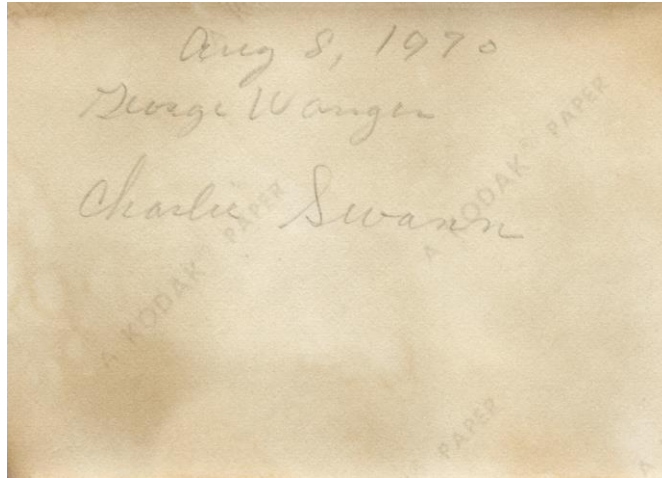 Aug 8, 1970
George Wanger
Charlie Swann
A KODAK PAPER
A KODAK PAPER
PAPER
A